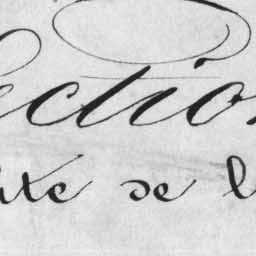 ection
ite de l